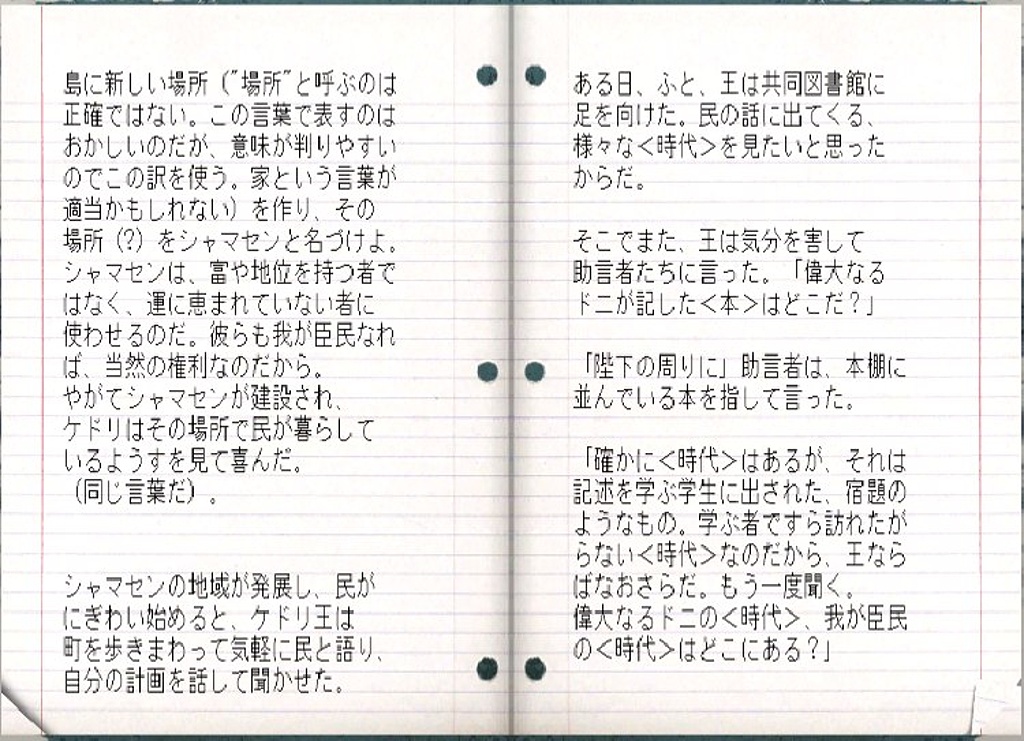 島に新しい場所（"場所"と呼ぶのは
正確ではない。この言葉で表すのは
おかしいのだが、意味が判りやすい
のでこの訳を使う。家という言葉が
適当かもしれない）を作り、その
場所（?）をシャマセンと名づけよ。
シャマセンは、富や地位を持つ者で
はなく、運に恵まれていない者に
使わせるのだ。彼らも我が臣民なれ
ば、当然の権利なのだから。
やがてシャマセンが建設され、
ケドリはその場所で民が暮らして
いるようすを見て喜んだ。
（同じ言葉だ）。
シャマセンの地域が発展し、民が
にぎわい始めると、ケドリ王は
町を歩きまわって気軽に民と語り、
自分の計画を話して聞かせた。
ある日、ふと、王は共同図書館に
足を向けた。民の話に出てくる、
様々な＜時代＞を見たいと思った
からだ。
そこでまた、王は気分を害して
助言者たちに言った。「偉大なる
ドニが記した＜本＞はどこだ？」
「陛下の周りに」助言者は、本棚に
並んでいる本を指して言った。
「確かに＜時代＞はあるが、それは
記述を学ぶ学生に出された、宿題の
ようなもの。学ぶ者ですら訪れたが
らない＜時代＞なのだから、王なら
ばなおさらだ。もう一度聞く。
偉大なるドニの＜時代＞、我が臣民
の＜時代＞はどこにある？」